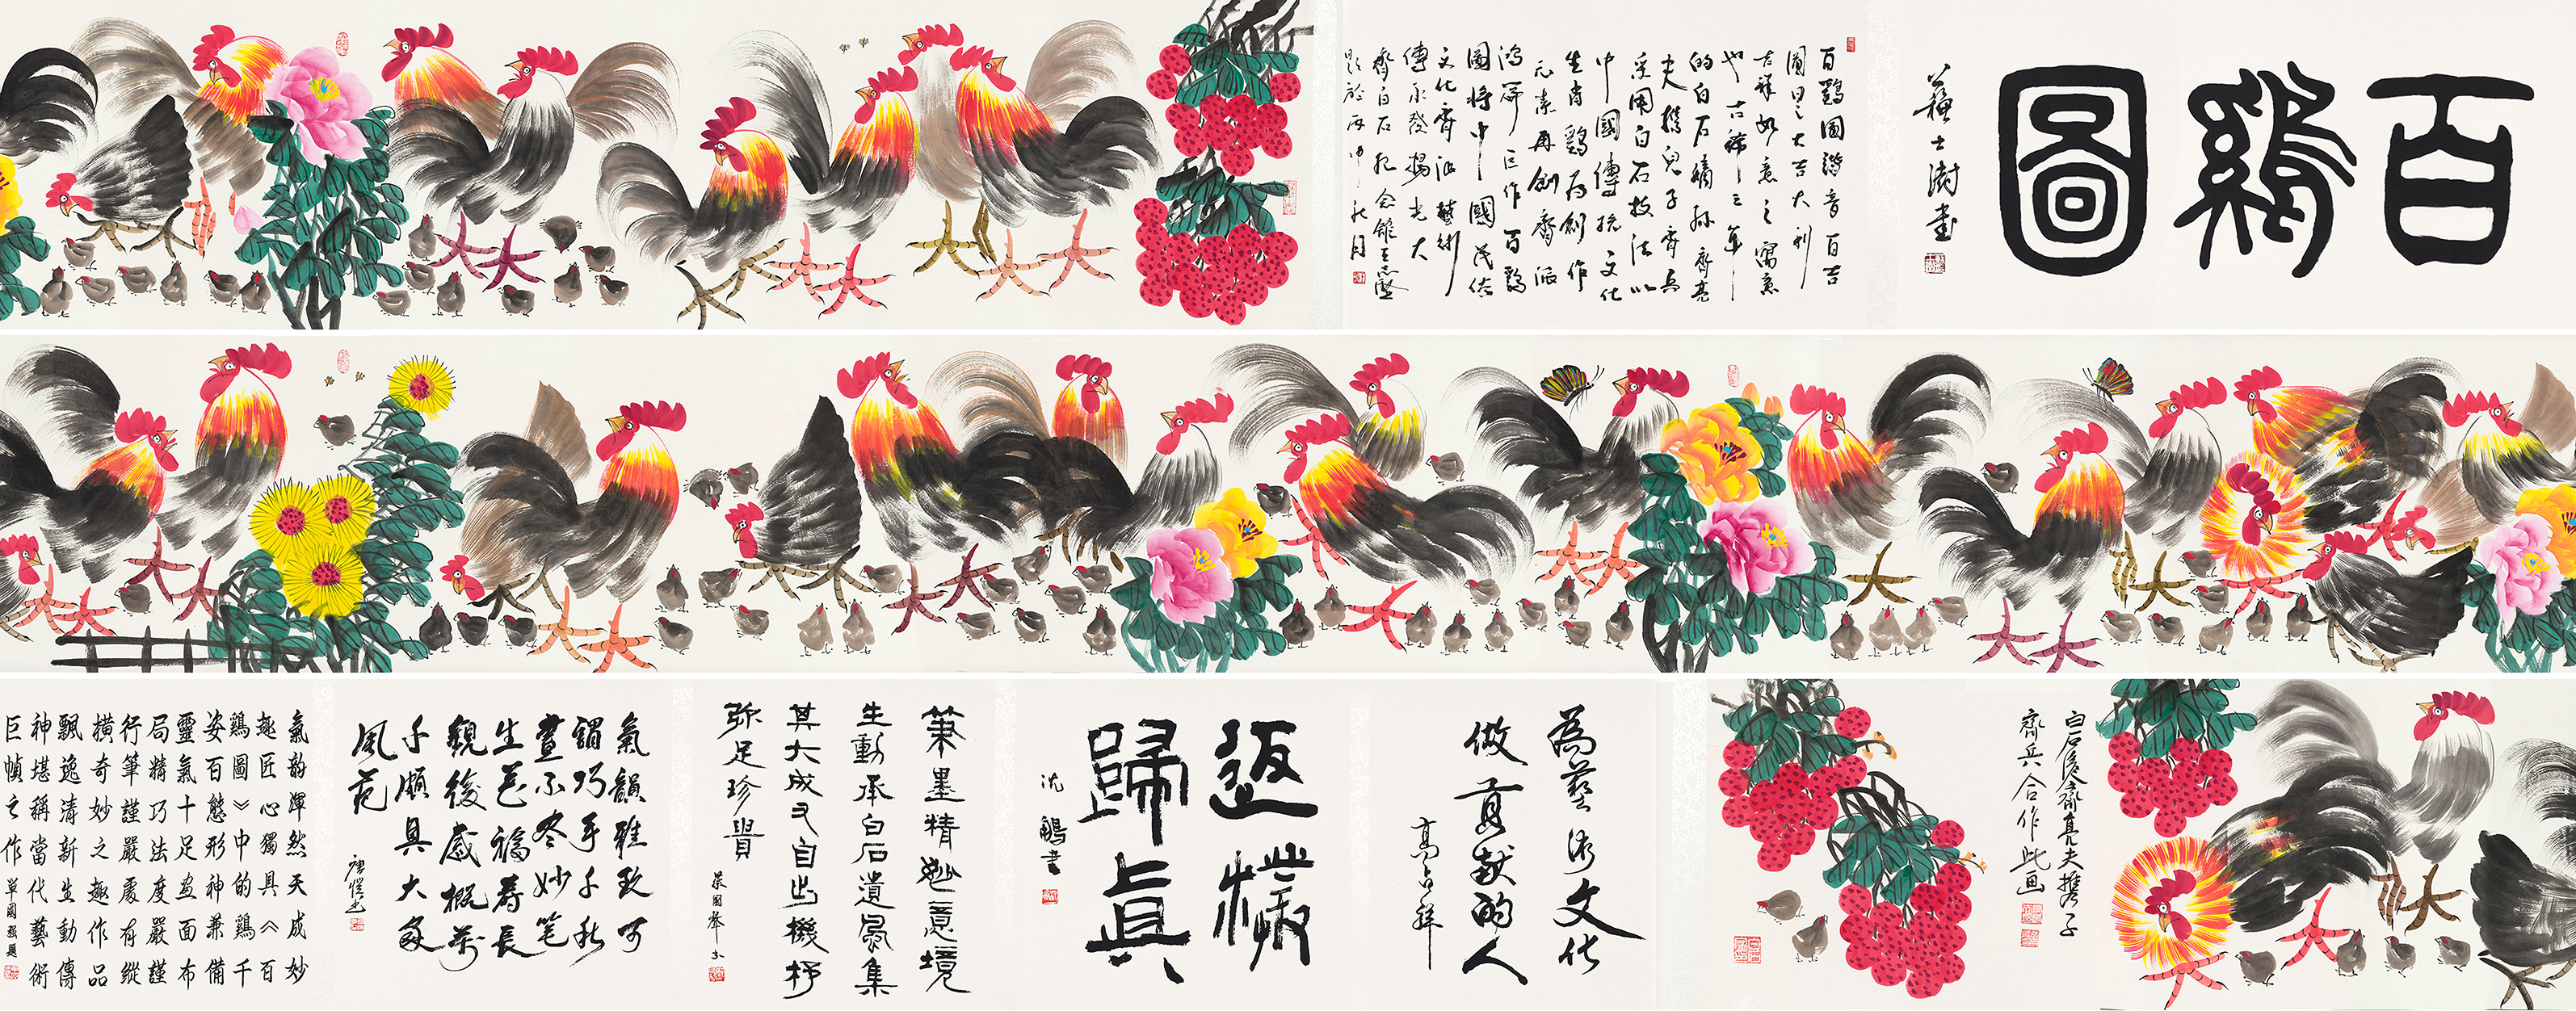 百鷄圖
蘇士澍書
百鷄圖諧音百吉
圖日日大吉大利
吉祥如意之寓意
也古稀之年
的白石嫡孫齊亮
夫攜兒子齊兵
采用白石技法以
中國傳統文化
生肖鷄为創作
元素再創齊派
鴻篇巨作百鷄
圖將中國民俗
文化齊派藝術
傳承發揚光大
齊白石紀念館王志堅
題於丙申秋月
白石後裔齊亮夫攜子
齊兵合作此画
為藝術文化
做貢献的人
高占祥
返樸
歸真
沈鵬書
筆墨精妙意境
生動承白石遺風集
其大成又自出機杼
弥足珍貴
氣韻雅致可
謂巧手千秋
畫不盡妙笔
生花福壽長
觀後感概萬
千頗具大家
風范
氣韵渾然天成妙
趣匠心獨具《百
鷄圖》中的鷄千
姿百態形神兼備
靈氣十足画面布
局精巧法度嚴謹
行筆謹嚴處有縱
橫奇妙之趣作品
飄逸清新生動傳
神堪稱當代藝術
巨幀之作 單國強題